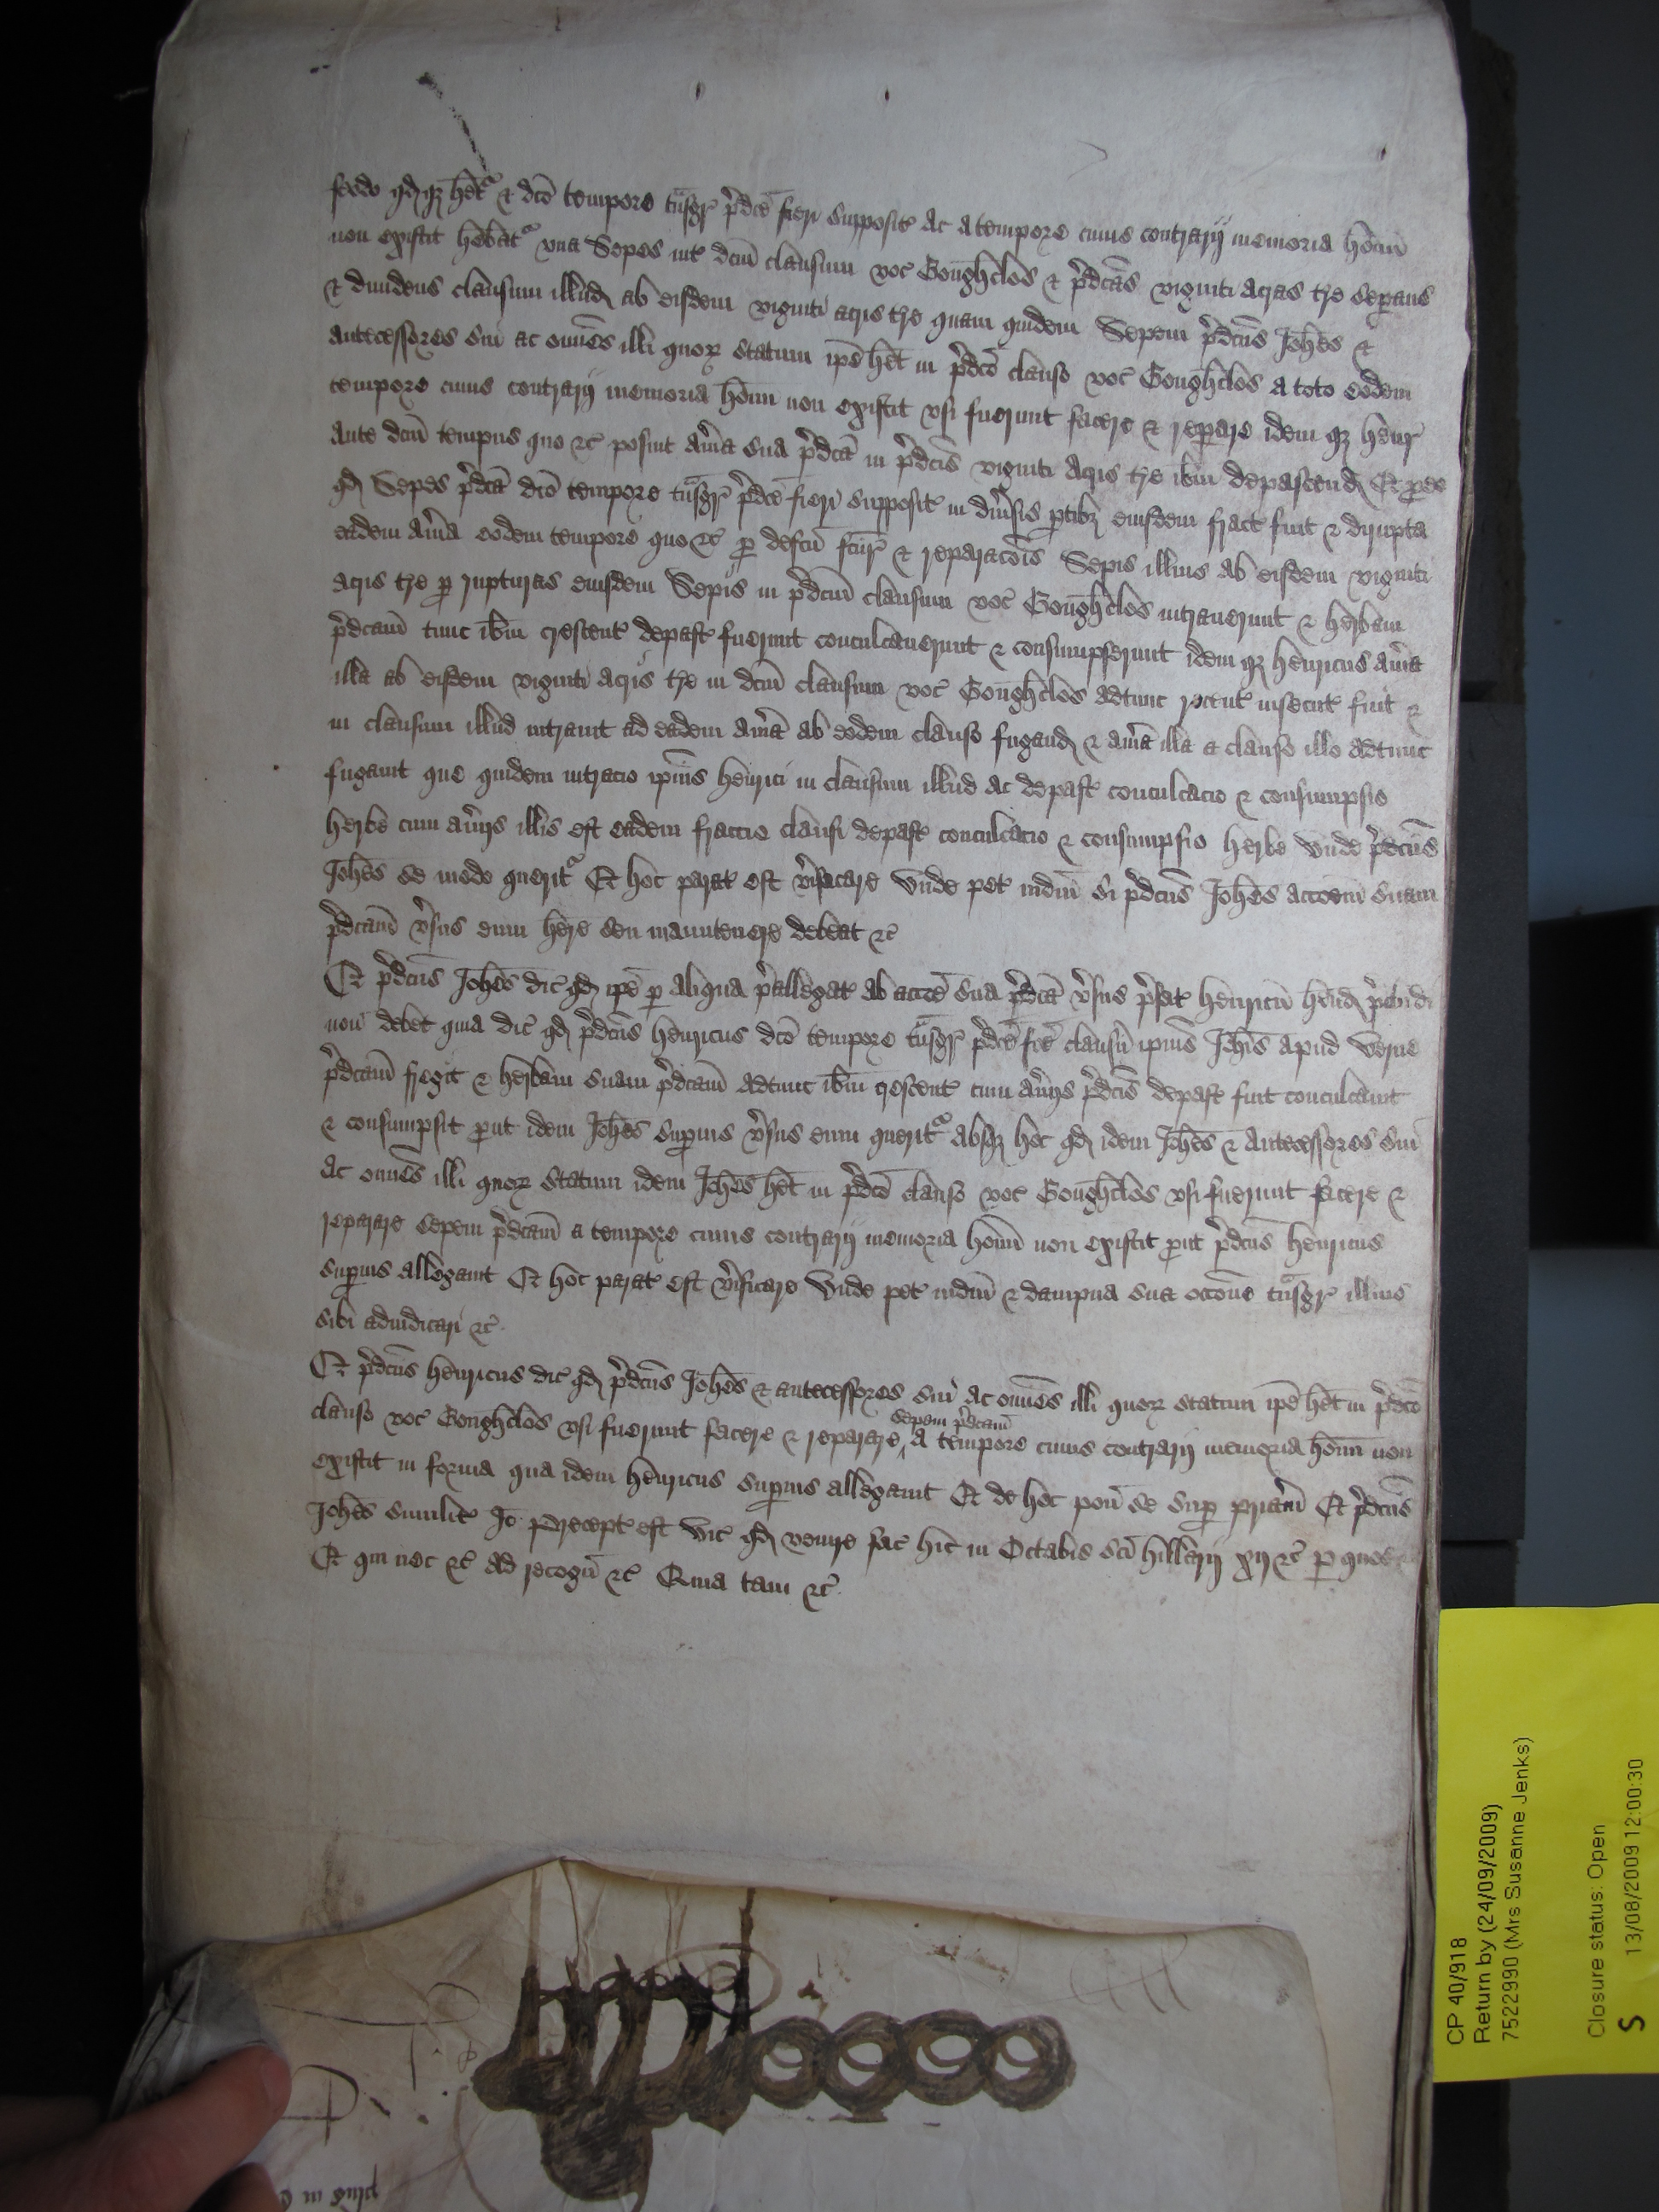 feodo qd qz hetr & dco tempore tnsgr pdce fieri supposit ac a tempore cuius contrarij memoria hoim
non existit hebatr vna Sepes int dcm clausum voc Goughclos & pdcas viginti acras tre sepans
& diuidens clausum illud ab eisdem viginti acris tre quam quidem Sepem pdcus Johes &
antecessores sui ac omes illi quor statum ipe het in pdco clauso voc Goughclos a toto eodem
tempore cuius contrarij memoria hoim non existit vsi fuerunt facere & repare idem qz henr
ante dcm tempus quo &c posuit aia sua pdca in pdcis viginti acris tre ibm depascend Et pro eo
qd Sepes pdca dco tempore tnsgr pdce fieri supposit in diusis ptibz eiusdem fract fuit & dirupta
eadem aia eodem tempore quo &c p defcu fcur & reparacois Sepis illius ab eisdem viginti
acris tre p rupturas eiusdem Sepis in pdcum clausum voc Goughclos intrauerunt & herbam
pdcam tunc ibm crescent depast fuerunt conculcauerunt & consumpserunt idem qz henricus aia
illa ab eisdem viginti acris tre in dcm clausum voc Goughclos adtunc recent insecut fuit &
in clausum illud intrauit ad eadem aia ab eodem clauso fugand & aia illa a clauso illo adtunc
fugauit que quidem intracio ipius henrici in clausum illud ac depast conculcacio & consumpsio
herbe cum aijs illis est eadem fraccio clausi depast conculcacio & consumpsio herbe vnde pdcus
Johes se modo queritr Et hoc parat est vificare vnde pet iudm si pdcus Johes accoem suam
pdcam vsus eum here seu manutenere debeat &c
Et pdcus Johes dic qd ipe p aliqua pallegat ab accoe sua pdca vsus pfat henricum hend pcludi
non debet quia dic qd pdcus henricus dco tempore tnsgr pdce fce clausu ipius Johis apud Verne
pdcam fregit & herbam suam pdcam adtunc ibm crescent cum aijs pdcis depast fuit conculcauit
& consumpsit put idem Johes supius vsus eum queritr absqz hoc qd idem Johes & antecessores sui
ac omes illi quor statum idem Johes het in pdco clauso voc Goughclos vsi fuerunt facere &
reparare sepem pdcam a tempore cuius contrarij memoria hoim non existit put pdcus henricus
supius allegauit Et hoc parat est vificare vnde pet iudm & dampna sua occoe tnsgr illius
sibi adiudicari &c
Et pdcus henricus dic qd pdcus Johes & antecessores sui ac omes illi quor statum ipe het in pdco
clauso voc Goughclos vsi fuerunt facere & reparare sepem pdcam a tempore cuius contrarij memoria hoim non
existit in forma qua idem henricus supius allegauit Et de hoc pon se sup priam Et pdcus
Johes similit Jo precept est vic qd venire fac hic in Octabis sci hillarij xij &c p quos
Et qui nec &c ad recogn &c Quia tam &c
CP 40/918
Return by (24/09/2009)
7522990 (Mrs Susanne Jenks)
Closure status: Open
S 13/08/2009 12:00:30